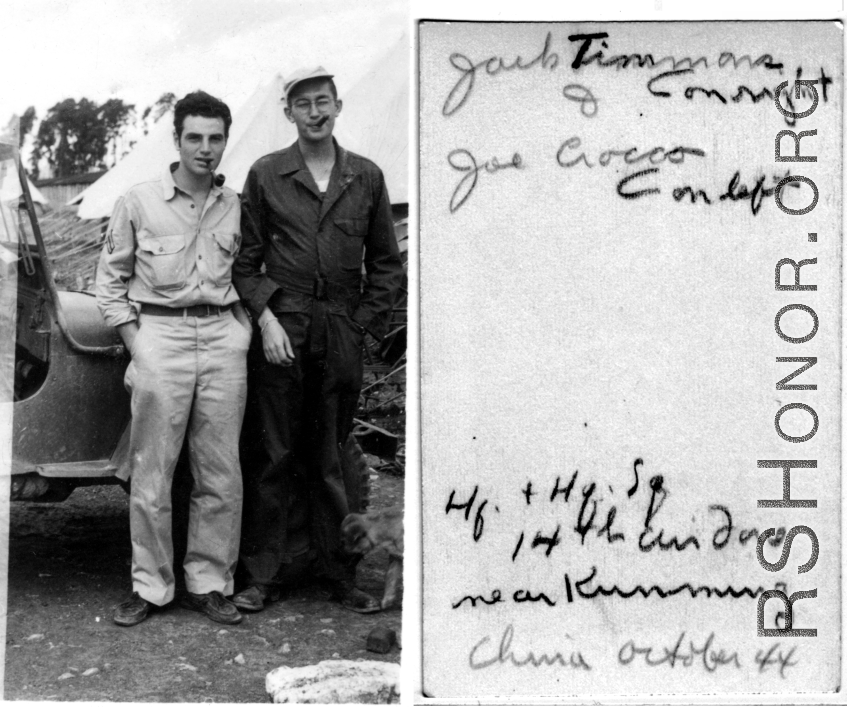 Jack Timmons
& C on right
Joe Crocco
C on left
Hq. + Hq. Sq
14th air Force
near Kunming
China October 44
RSHONOR.ORG